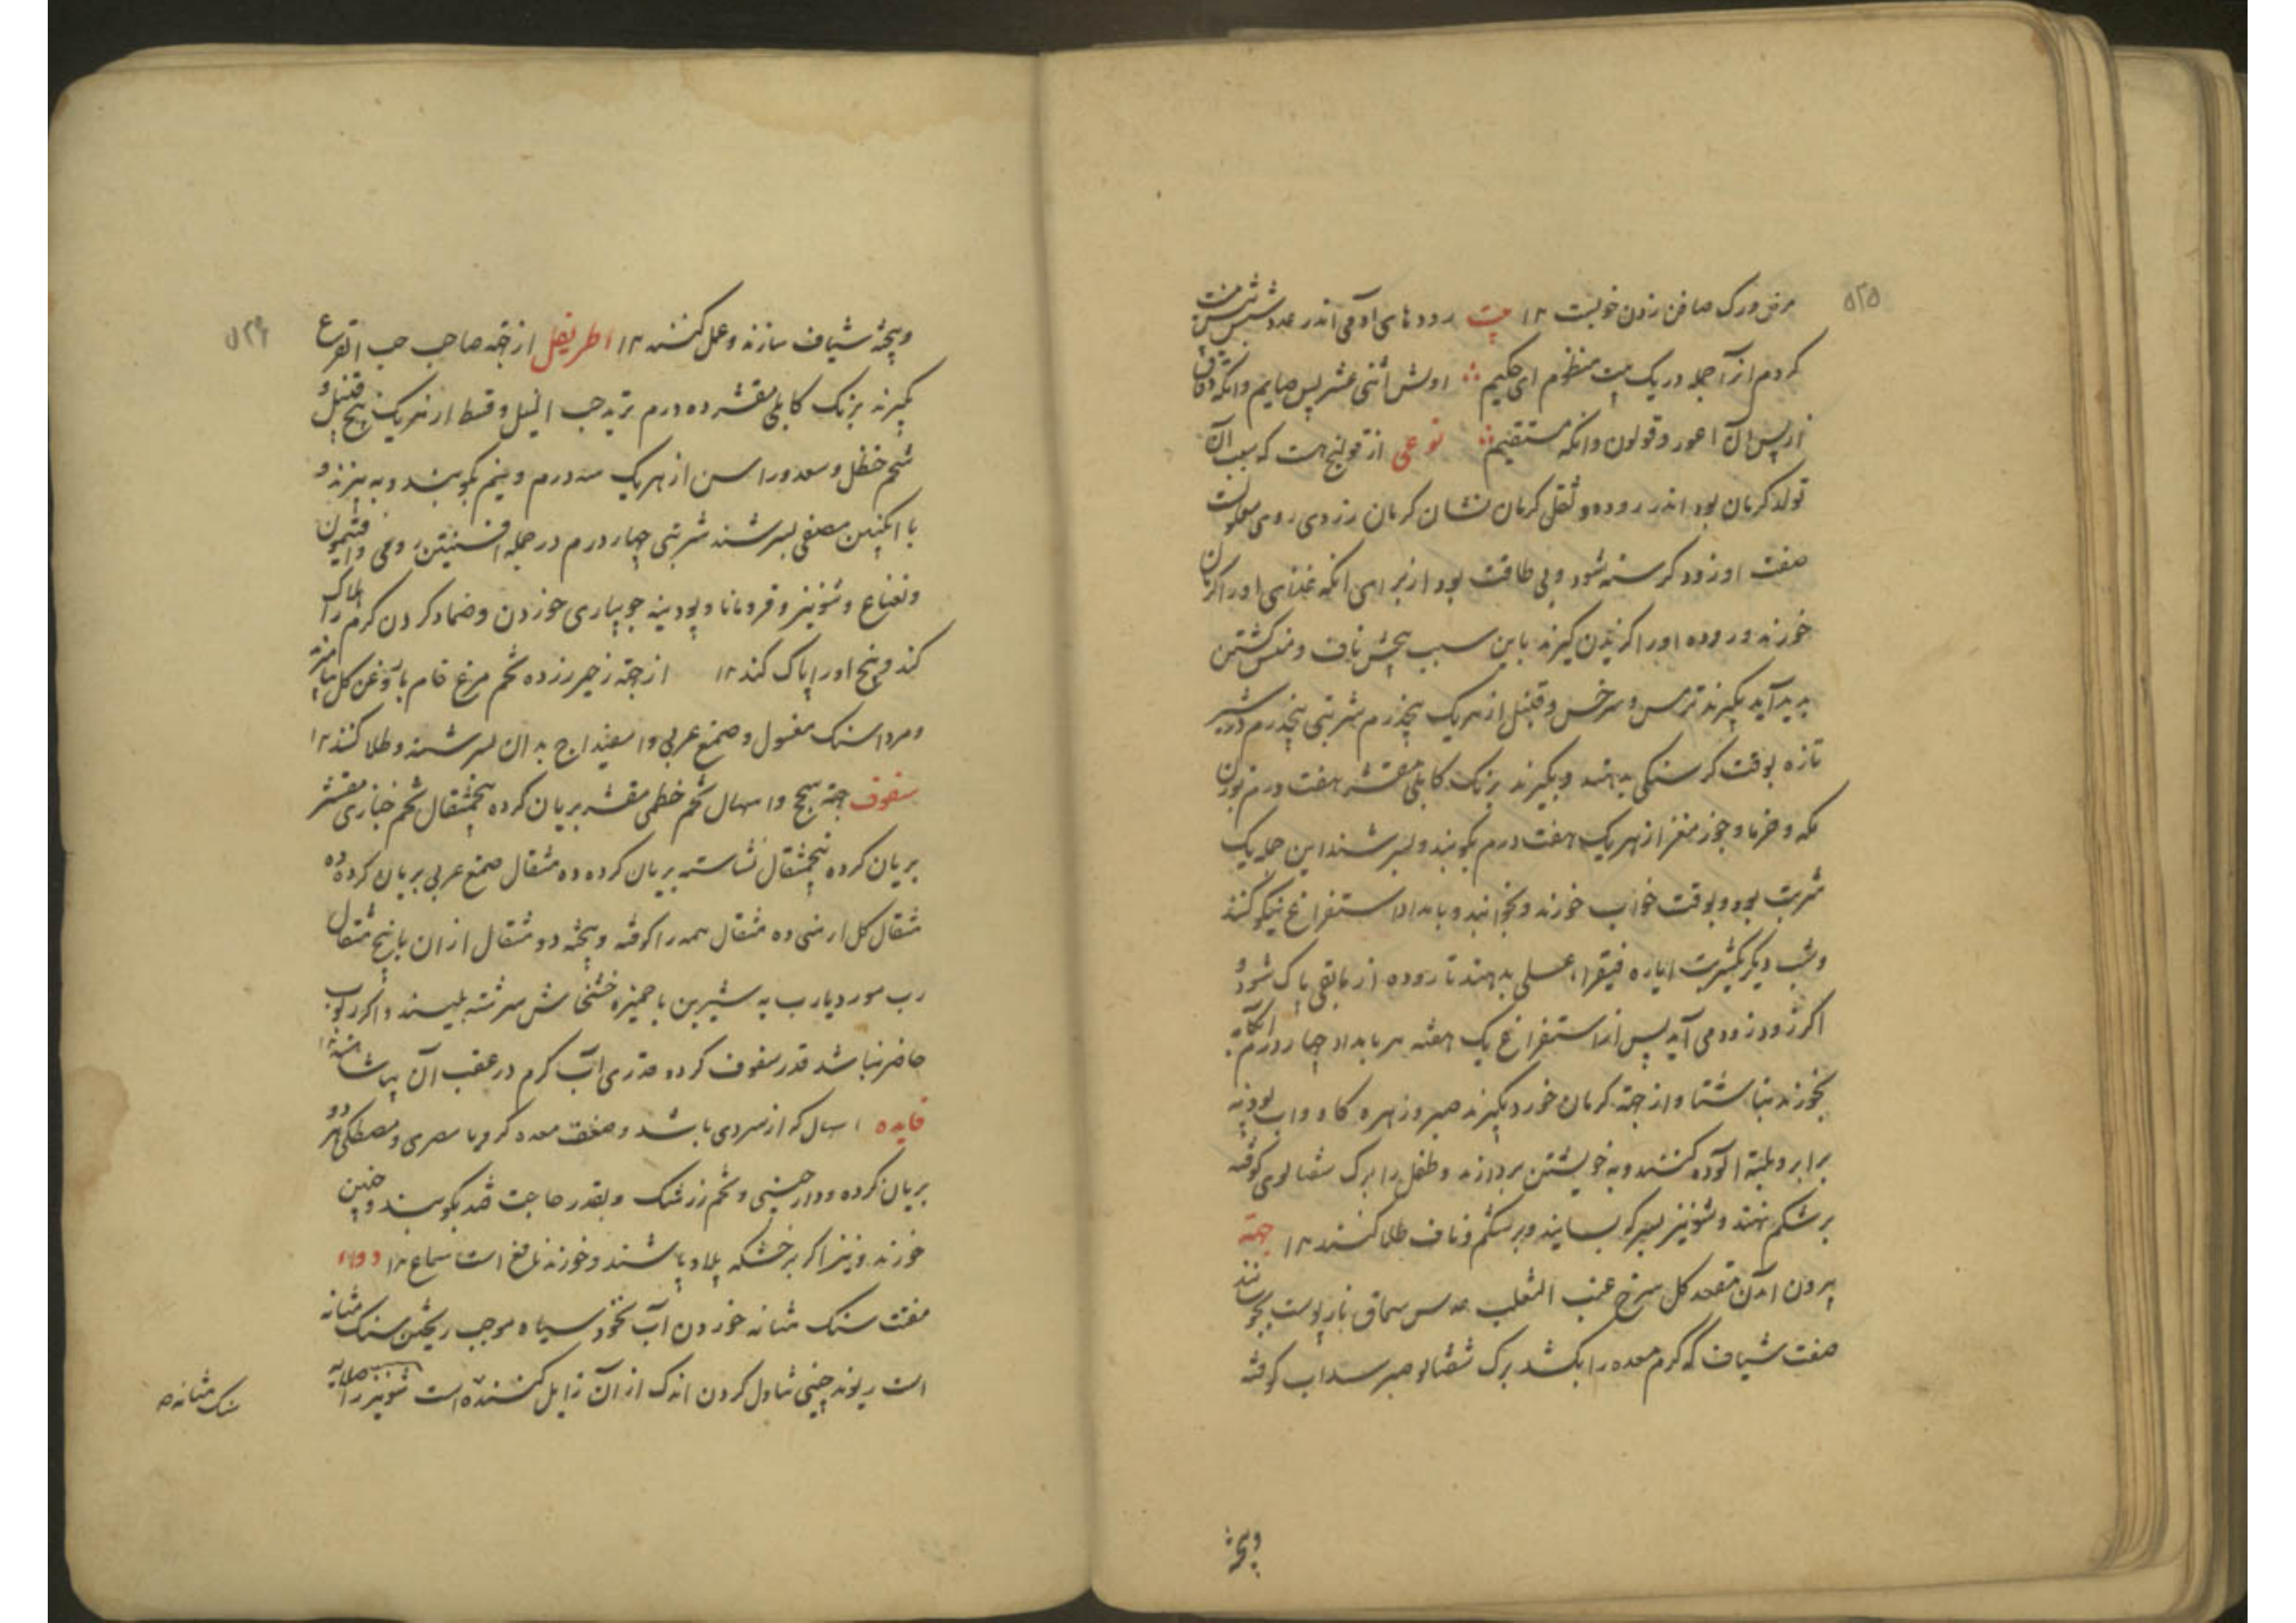 ۵۲۵
مرض ورک صافن زدن خوبست ۱۲ بیت روده‌های آدمی اندر عدد شش
کردم از آجمله در یک بیت منظوم ای حکیم اولش اثنی عشر پس صایم وانگه دقاق
از پس آن اعور و قولون وانگه مستقیم نوعی از قولنج هست که سبب آن
تولد کرمان بود اندر روده و ثقل کرمان نشان کرمان زردی روی
صفت او زود کرسنه شود و بی طاقت بود از برای انکه غذای او را کرمان
خورند و روده او را کزیدن کیرند باین سبب پیچش ناف و کشتن
پدید آید بکیرند ترمس و سرخس و قنبیل از هریک پنجدرم شربتی پنجدرم در شیر
تازه بوقت کرسنکی بدهند و بکیرند برنک کابلی مقشر هفت درم
مکه و خرما و جوز مغز از هریک هفت درم بکوبند و بسرشند این جمله یک
شربت بود و بوقت خواب خورند و بخوابند و بامداد استفراغ نیکو کنند
و شب دیکر یکشربت ایاره فیقرا عسلی بدهند تا روده از مابقی پاک شود و
اکر زود زود می آید پس از استفراغ یک هفته هر بامداد چهار درم
بخورند ناشتا و از جهة کرمان خورد بکیرند صبر و زهره کاو و اب پودنه
برابر و پلیته آلوده کنند و به خویشتن بردارند و طفل را برک شفتالوی کوفته
برشکم نهند و شونیز بسرکه بسایند و برشکم و ناف طلا کنند ۱۲ جهة
بیرون آمدن مقعد کل سرخ عنب الثعلب عدس سماق نارپوست بجوشانند
صفت شیاف که کرم معده را بکشد برک شفتالو صبر سداب کوفته
وپخته
۵۲۶
وپخته شیاف سازند و عمل کنند ۱۲ اطریفل از جهة صاحب حب القرع
بکیرند برنک کابلی مقشر ده درم تربد حب النیل و قسط از هریک پنج قنبیل و
شحم حنظل و سعد و راسن از هریک سه درم و نیم بکوبند و به بیزند و
با انکبین مصفی بسرشند شربتی چهار درم در جمله افسنتین رومی و افتیمون
و نعناع و شونیز و قردمانا و پودینه جویباری خوردن و ضماد کردن کرم را هلاک
کند و بیخ او را پاک کند ۱۲ از جهة زحیر زرده تخم مرغ خام با روغن کل بیامیزند
و مرداسنک مغسول و صمغ عربی و اسفیداج بدان بسرشند و طلا کنند ۱۲
سفوف جهة سحج و اسهال تخم خطمی مقشر بریان کرده پنجمثقال تخم خبازی مقشر
بریان کرده پنجمثقال نشاسته بریان کرده ده مثقال صمغ عربی بریان کرده ده
مثقال کل ارمنی ده مثقال همه را کوفته و پخته دو مثقال از ان با پنج مثقال
رب مورد یا رب به شیرین با خمیره خشخاش سرشته بلیسند و اکر ربوب
حاضر نباشد قدر سفوف کرده قدری آب کرم در عقب آن بیاشامند ۱۲
فایده اسهال که از سردی باشد و ضعف معده کرویا مصری و مصطکی هر دو
بریان کرده و دارچینی و تخم زرشک و بقدر حاجت قند بکوبند و چنین
خورند و نیز اکر برخشکه پلاو پاشند و خورند نافع است سماع ۱۲ دواء
مفتت سنک مثانه خوردن آب نخود سیاه موجب ریختن سنک مثانه
است ریوند چینی تناول کردن اندک از آن زایل کننده است شونیز را
سنک مثانه